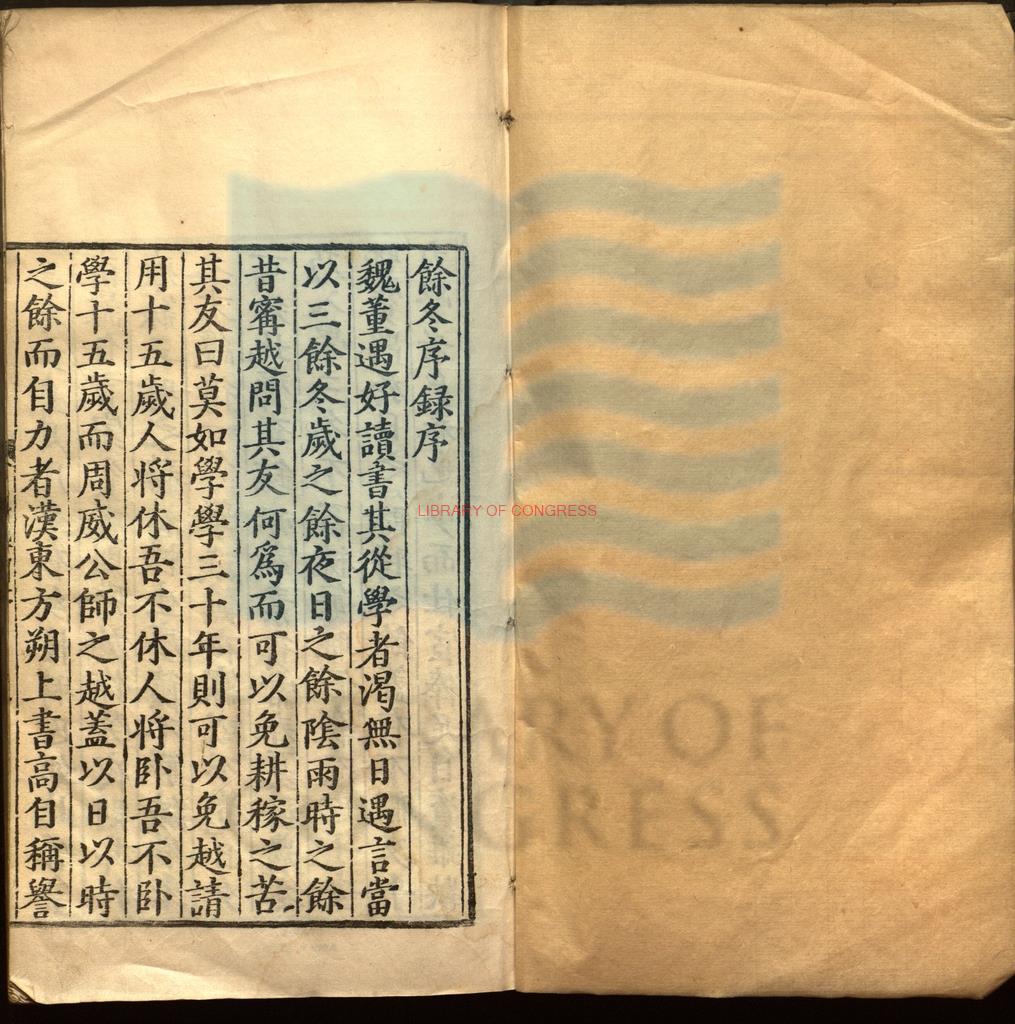 餘冬序録序
魏董遇好讀書其從學者渴無日遇言當
以三餘冬歲之餘夜日之餘陰雨時之餘
昔甯越問其友何爲而可以免耕稼之苦
其友曰莫如學學三十年則可以免越請
用十五歲人将休吾不休人将卧吾不卧
學十五歲而周威公師之越蓋以日以時
之餘而自力者漢東方朔上書高自稱譽
LIBRARY OF CONGRESS
LIBRARY OF
CONGRESS